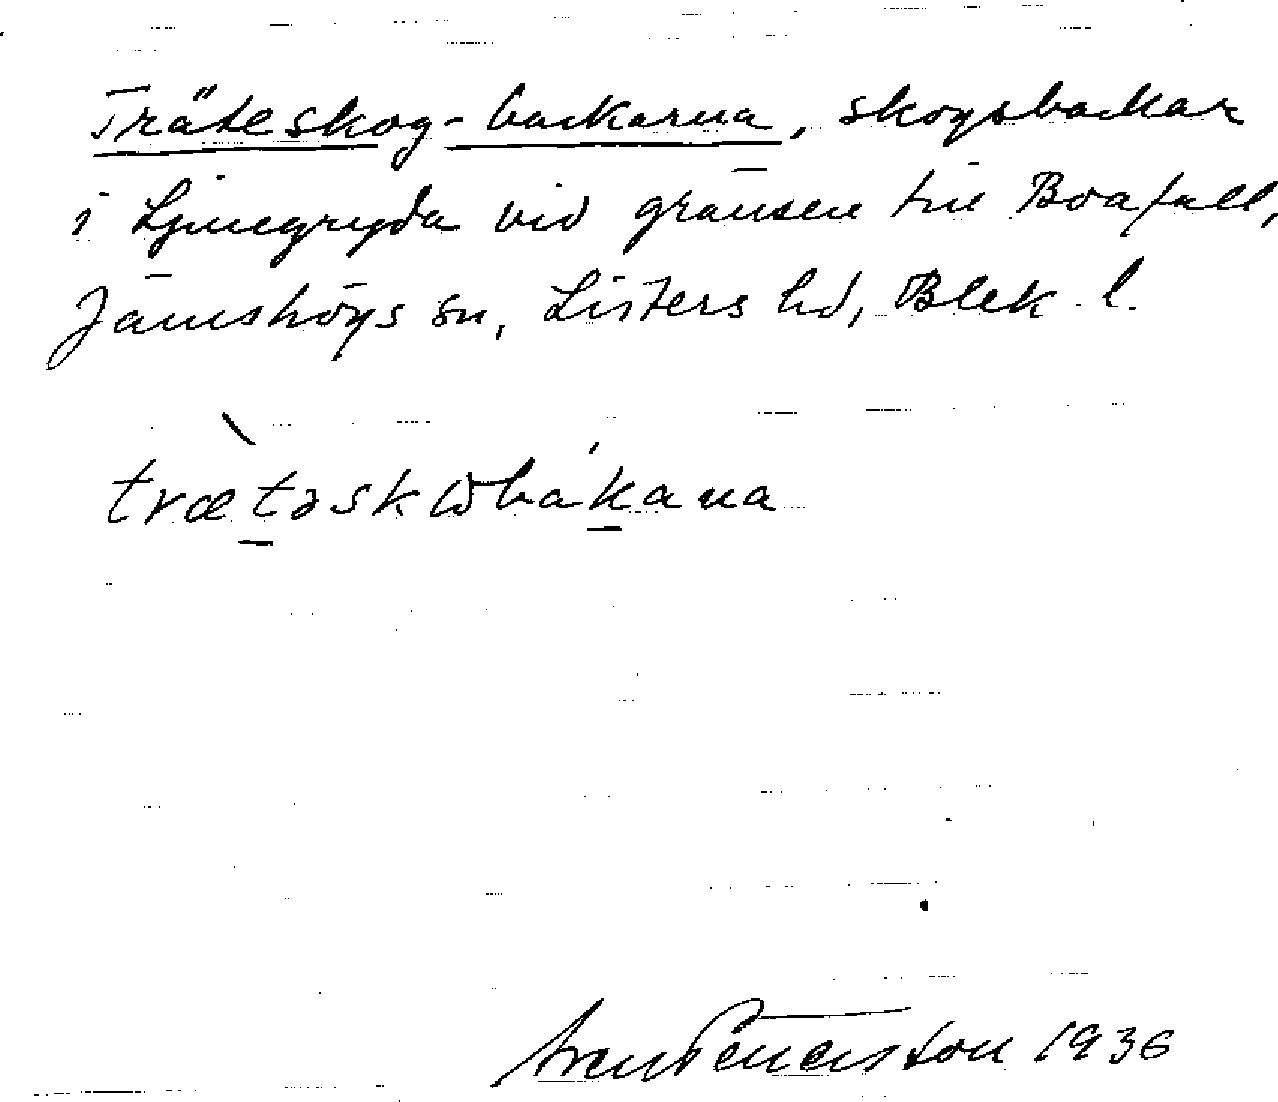 Träteskog-backarna, skogsbackar
i Ljunegryda vid gränsen till Boafall,
Jämshögs sn, Listers hd, Blek. l.
trætəskωbákana
Sven Benson 1936